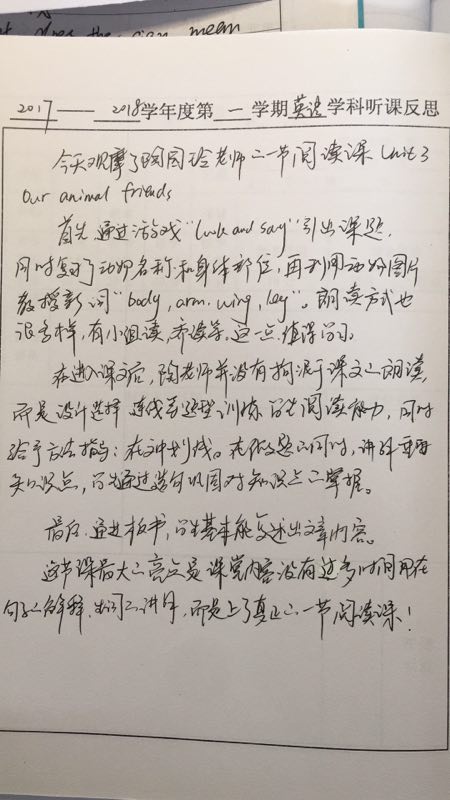 does the sign mean
2017——2018学年度第一学期英语学科听课反思
今天观摩了陶园玲老师的一节阅读课 Unit 3
Our animal friends
首先通过游戏“look and say”引出课题，
同时复习了动物名称和身体部位，再利用动物图片
教授新词“body, arm, wing, leg”。朗读方式也
很多样，有小组读、齐读等，这一点值得学习。
在进入课文后，陶老师并没有拘泥于课文的朗读，
而是设计选择、连线等题型训练学生阅读能力，同时
给予方法指导：在文中划线。在做题的同时，讲解重要
知识点，学生通过造句巩固对知识点的掌握。
最后，通过板书，学生基本能复述出文章内容。
这节课最大的亮点是课堂内容没有过多时间用在
句子的解释、生词的讲解，而是上了真正的一节阅读课！